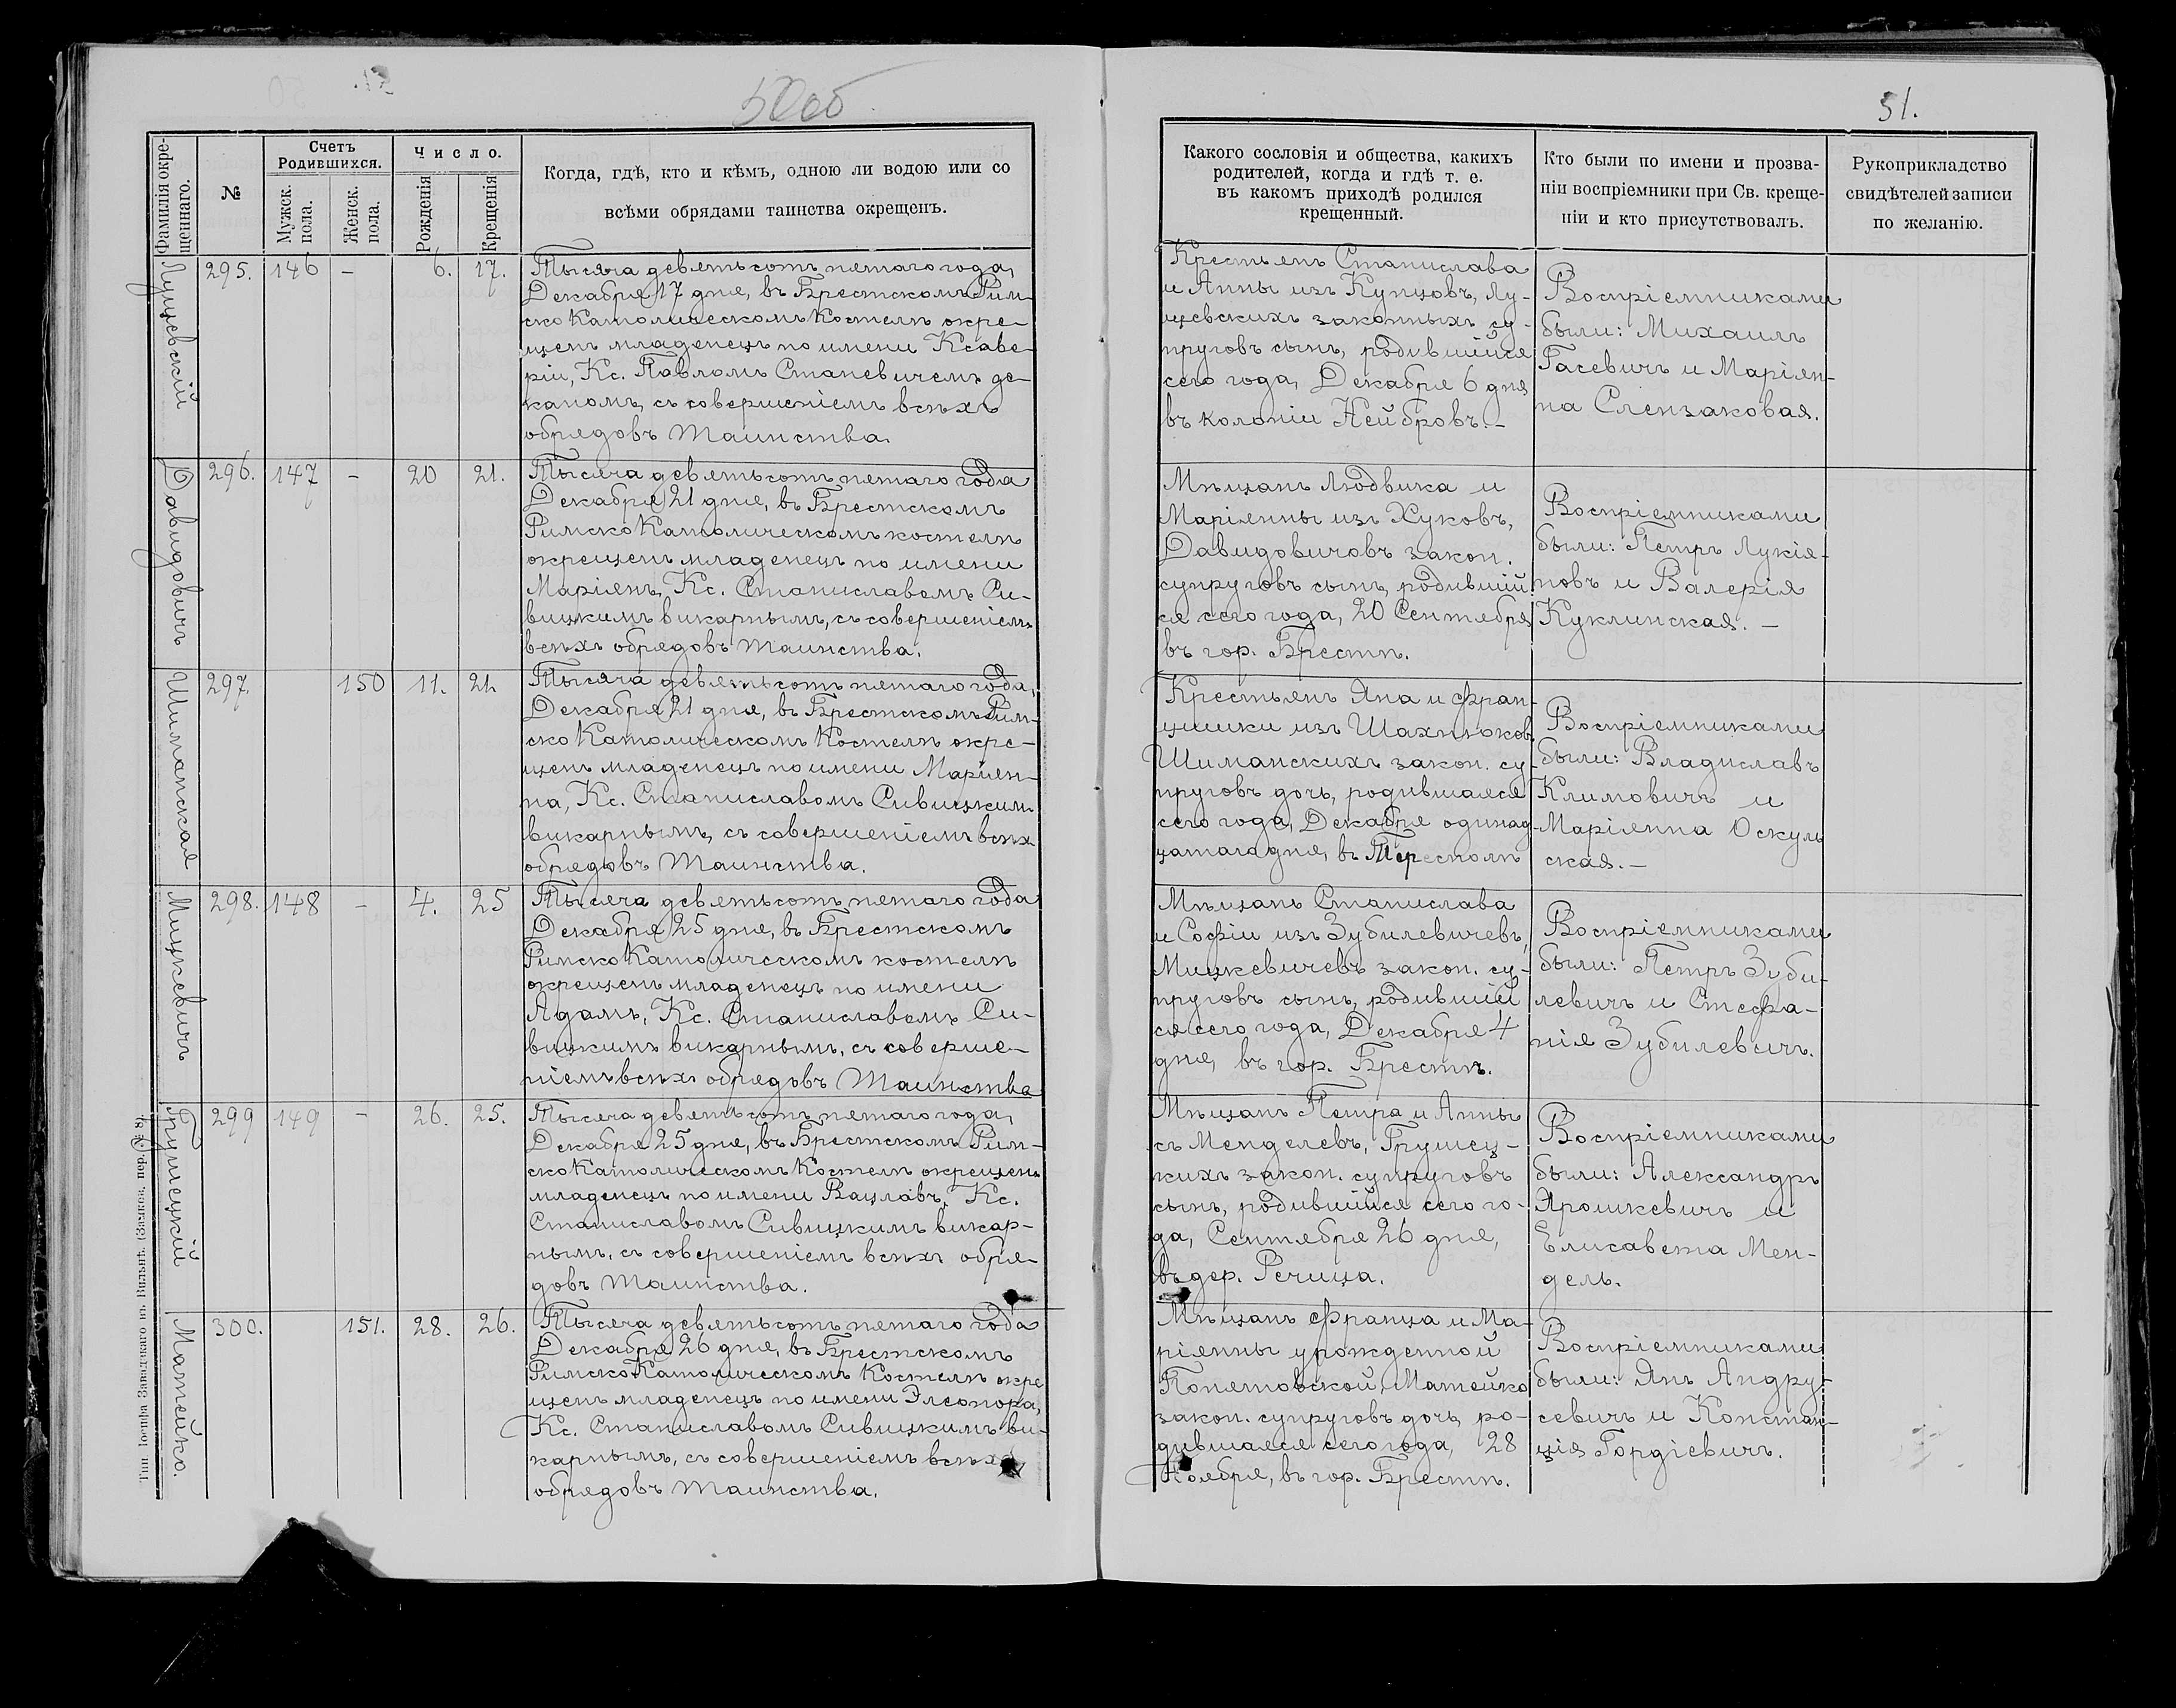 50об
51.
Фамилія окре-
щеннаго.
№
Счетъ
Родившихся.
Мужск.
пола.
Женск.
пола.
Число.
Рожденія
Крещенія
Когда, гдѣ, кто и кѣмъ, одною ли водою или со
всѣми обрядами таинства окрещенъ.
Какого сословія и общества, какихъ
родителей, когда и гдѣ т. е.
въ какомъ приходѣ родился
крещенный.
Кто были по имени и прозва-
ніи воспріемники при Св. креще-
ніи и кто присутствовалъ.
Рукоприкладство
свидѣтелей записи
по желанію.
Луцевскій
295. 146 - 6. 17.
Тысяча девятьсотъ пятаго года,
Декабря 17 дня, въ Брестскомъ Рим-
ско Католическомъ Костелѣ окре-
щенъ младенецъ по имени Ксаве-
рій, Кс. Павломъ Станевичемъ де-
каномъ, съ совершеніемъ всѣхъ
обрядовъ Таинства.
Крестьянъ Станислава
и Анны изъ Купцовъ, Лу-
цевскихъ законныхъ су-
пруговъ сынъ, родившійся
сего года, Декабря 6 дня
въ колоніи Нейбровъ.-
Воспріемниками
были: Михаилъ
Гасевичъ и Маріян-
на Слензаковая.
Давидовичъ
296. 147 - 20 21.
Тысяча девятьсотъ пятаго года
Декабря 21 дня, въ Брестскомъ
Римско Католическомъ костелѣ
окрещенъ младенецъ по имени
Маріянъ, Кс. Станиславомъ Си-
вицкимъ викарнымъ, съ совершеніемъ
всѣхъ обрядовъ Таинства.
Мѣщанъ Людвика и
Маріянны изъ Жуковъ,
Давидовичовъ закон.
супруговъ сынъ, родившій-
ся сего года, 20 Сентября
въ гор. Брестѣ.
Воспріемниками
были: Петръ Лукія-
новъ и Валерія
Куклинская. -
Шиманская
297. 150 11. 21.
Тысяча девятьсотъ пятаго года,
Декабря 21 дня, въ Брестскомъ Рим-
ско Католическомъ Костелѣ окре-
щенъ младенецъ по имени Маріян-
на, Кс. Станиславомъ Сивицкимъ
викарнымъ, съ совершеніемъ всѣхъ
обрядовъ Таинства.
Крестьянъ Яна и Фран-
цишки изъ Шахнюковъ
Шиманскихъ закон. су-
пруговъ дочь, родившаяся
сего года, Декабря одинад-
цатаго дня, въ Тересполѣ
Воспріемниками
были: Владиславъ
Климовичъ и
Маріянна Оскуль
ская. -
Мицкевичъ
298. 148 - 4. 25
Тысяча девятьсотъ пятаго года
Декабря 25 дня, въ Брестскомъ
Римско Католическомъ костелѣ
окрещенъ младенецъ по имени
Адамъ, Кс. Станиславомъ Си-
вицкимъ викарнымъ, съ соверше-
ніемъ всѣхъ обрядовъ Таинства
Мѣщанъ Станислава
и Софіи изъ Зубилевичевъ,
Мицкевичевъ закон. су-
пруговъ сынъ, родившій
ся сего года, Декабря 4
дня, въ гор. Брестѣ.
Воспріемниками
были: Петръ Зуби-
левичъ и Стефа-
нія Зубилевичъ.
Грушецкій
299 149 - 26. 25.
Тысяча девятьсотъ пятаго года,
Декабря 25 дня, въ Брестскомъ Рим-
ско Католическомъ Костелѣ окрещенъ
младенецъ по имени Вацлавъ, Кс.
Станиславомъ Сивицкимъ викар-
нымъ, съ совершеніемъ всѣхъ обря-
довъ Таинства.
Мѣщанъ Петра и Анны
съ Менделевъ, Грушец-
кихъ закон. супруговъ
сынъ, родившійся сего го-
да, Сентября 26 дня,
въ дер. Речица.
Воспріемниками
были: Александръ
Ярошкевичъ и
Елисавета Мен-
дель.
Матейко.
300. 151. 28. 26.
Тысяча девятьсотъ пятаго года
Декабря 26 дня, въ Брестскомъ
Римско Католическомъ Костелѣ окре
щенъ младенецъ по имени Элеонора,
Кс. Станиславомъ Сивицкимъ ви-
карнымъ, съ совершеніемъ всѣхъ
обрядовъ Таинства.
Мѣщанъ Франца и Ма-
ріянны урожденной
Понятовской, Матейко
закон. супруговъ дочь, ро-
дившаяся сего года, 28
Ноября, въ гор. Брестѣ.
Воспріемниками
были: Янъ Андру-
севичъ и Констан-
ція Гордіевичъ.
Тип. Іосифа Завадзкаго въ Вильнѣ.